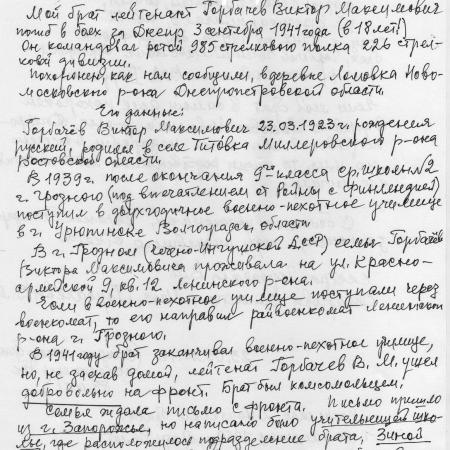 Мой брат лейтенант Горбачёв Виктор Максимович
погиб в боях за Днепр 3 сентября 1941 года (в 18 лет!)
Он командовал ротой 985 стрелкового полка 226 стрел-
ковой дивизии.
Похоронен, как нам сообщили, в деревне Ломовка Ново-
московского р-она Днепропетровской области.
Его данные:
Горбачёв Виктор Максимович 23.03.1923 г. рождения
русский, родился в селе Титовка Миллеровского р-она
Ростовской области.
В 1939 г. после окончания 9го класса ср. школы №2
г. Грозного (под впечатлением от войны с Финляндией)
поступил в двухгодичное военно-пехотное училище
в г. Урюпинске Волгоградск. области
В г. Грозном (Чечено-Ингушской АССР) семья Горбачёва
Виктора Максимовича проживала на ул. Красно-
армейской 9, кв. 12 Ленинского р-она.
Если в военно-пехотное училище поступали через
военкомат, то его направил райвоенкомат Ленинского
р-она г. Грозного.
В 1941 году брат заканчивал военно-пехотное училище,
но, не заехав домой, лейтенант Горбачёв В. М. ушёл
добровольно на фронт. Брат был комсомольцем.
Семья ждала письмо с фронта. Письмо пришло
из г. Запорожье, но написано было учительницей шко-
лы, где расположилось подразделение брата, Зиной